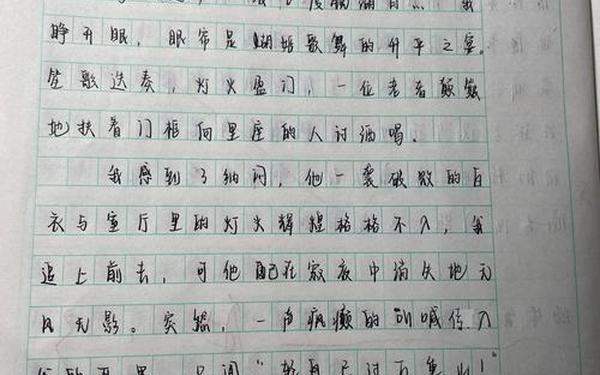 睁开眼，眼帘是蝴蝶歌舞的升平之宴。
笙歌迭奏，灯火盈门，一位老者颠巍
地扶着门框向里座的人讨酒喝。
我感到了纳闷，他一袭破败的白
衣与宴厅里的灯火辉煌格格不入，我
追上前去，可他已在寂夜中消失地无
风无影。突然，一声疯癫的叫喊传入
轻舟已过万重山！"